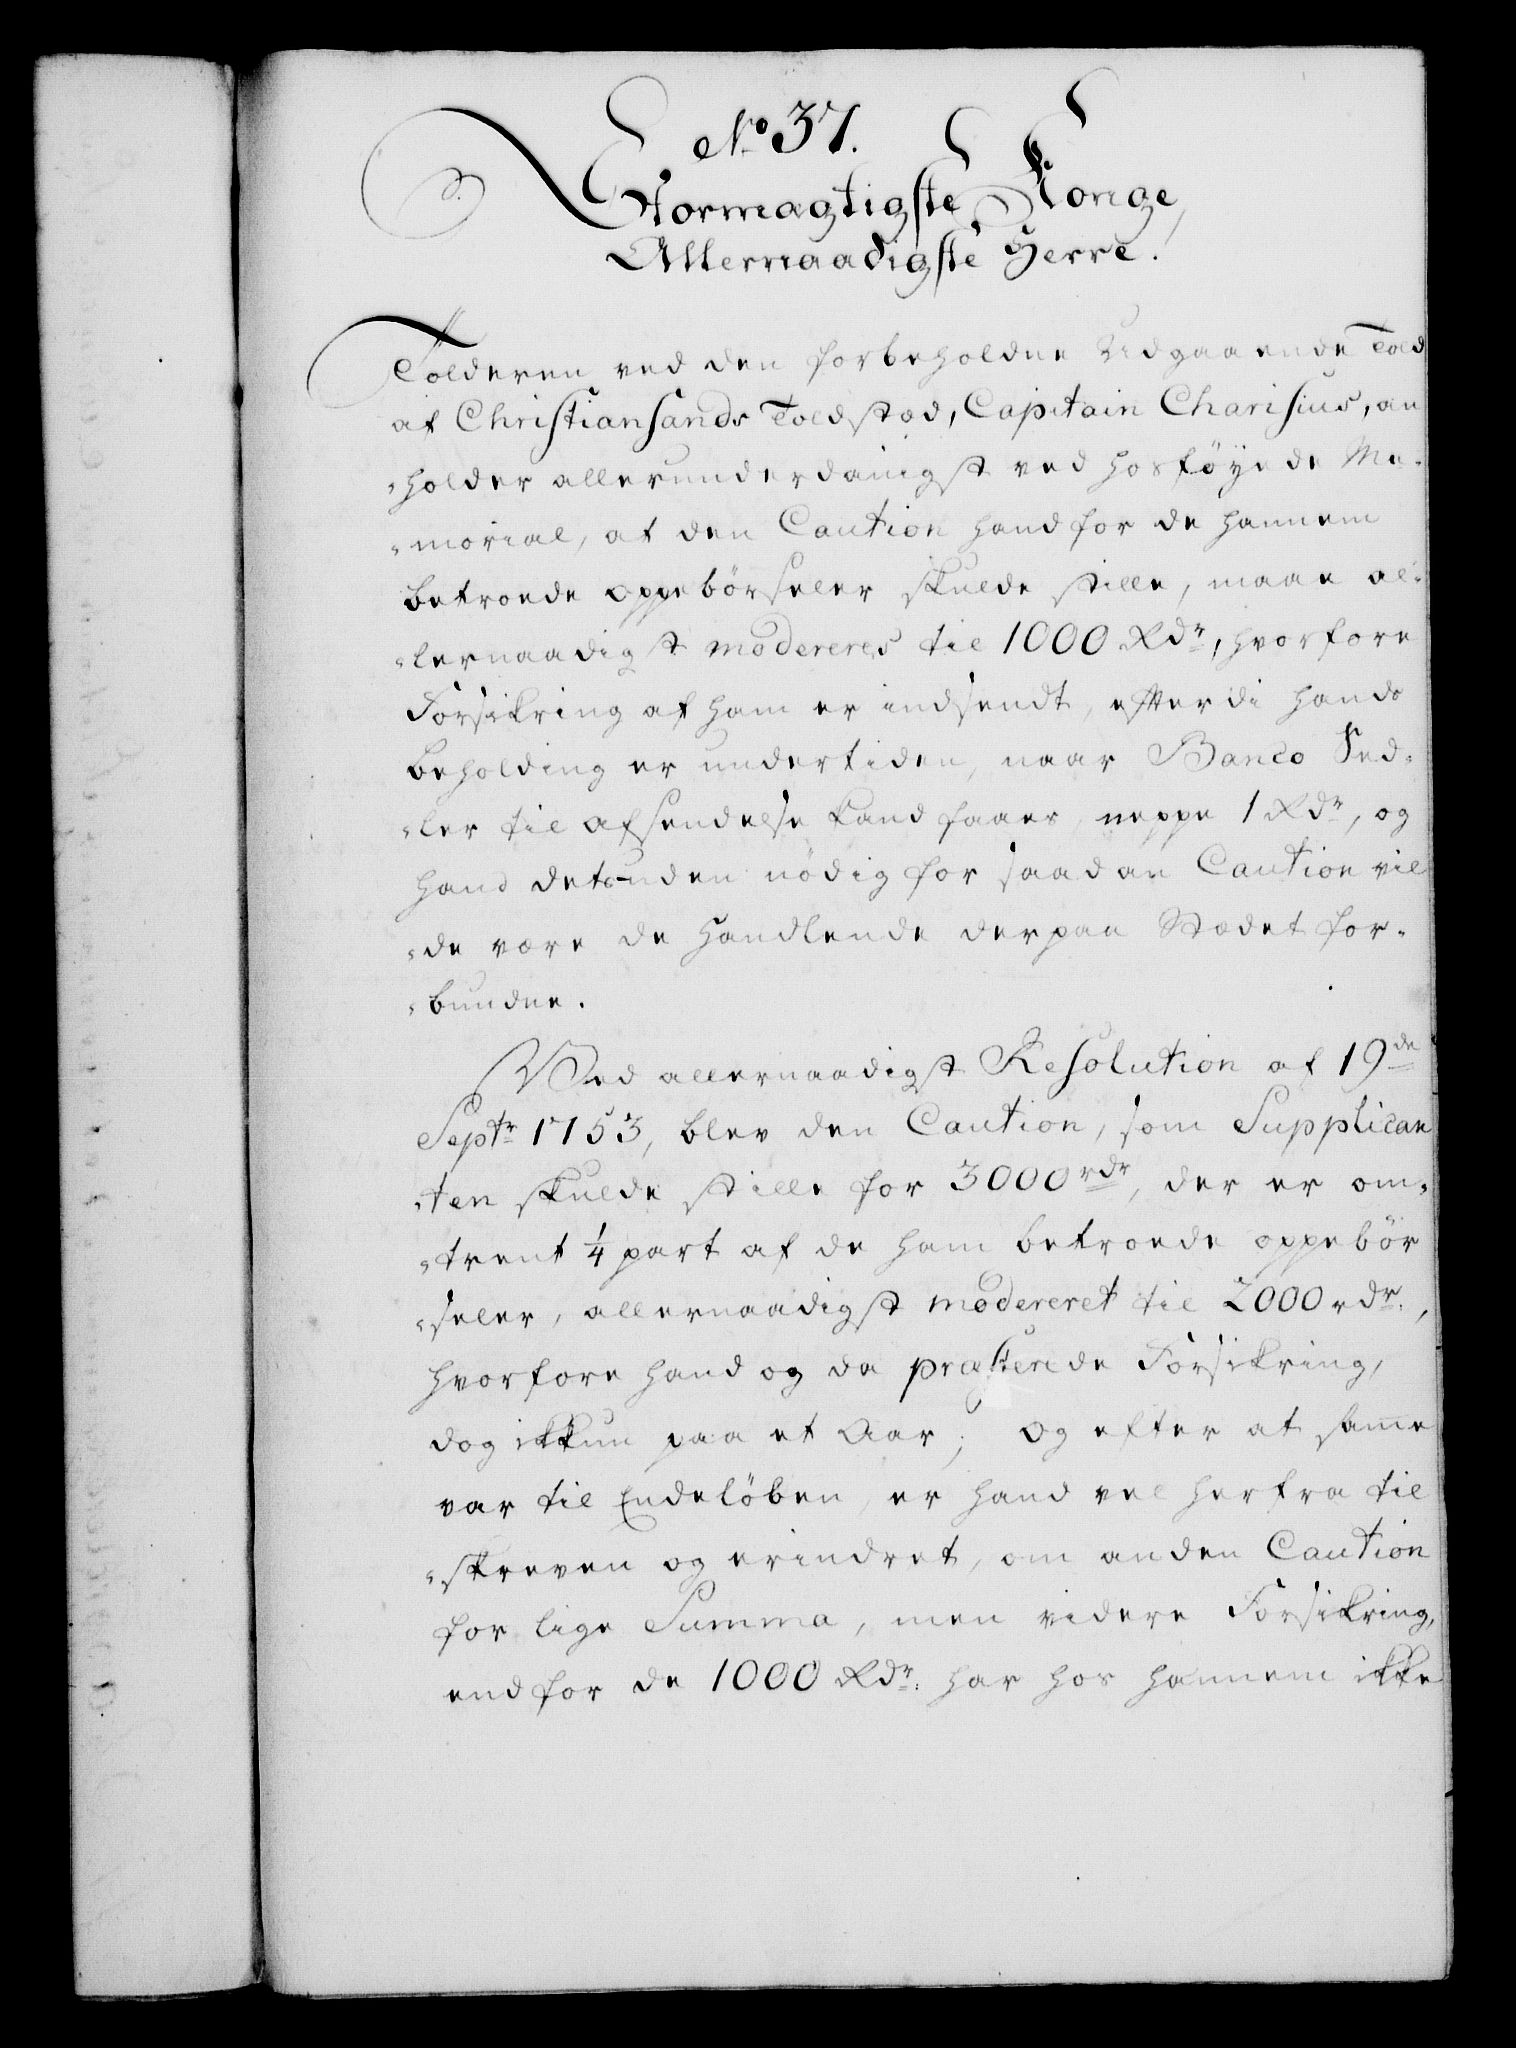 No 37.
Stormagtigste Konge,
Allernaadigste Herre.
Tolderen ved den forbeholdne Udgaaende Told
af Christiansands Toldstæd, Capitain Charisius, an
-holder allerunderdanigst ved hosføyede Me-
-morial, at den Caution hand for de hannem
betroede oppebörseler skulde stille, maae al-
-lernaadigst modereres til 1000 Rdr, hvorfore
Forsikring af ham er indsendt, efterdi hands
beholding er undertiden, naar Banco Sed-
-ler til afsendelse kand faaes, neppe 1 Rdr, og
hand desuden nödig for saadan Caution vil
-de være de Handlende der paa Stædet for-
-bunden.
Ved allernaadigst Resolution af 19de
Septr 1753, blev den Caution, som Supplican
-ten skulde stille for 3000 rdr, der er om-
-trent 1/4 part af de ham betroede oppebör
-seler, allernaadigst modereret til 2000 rdr.,
hvorfore hand og da præsterede Forsikring,
dog ikkun paa et Aar; og efter at samme
var til Ende löben, er hand vel herfra til
-skreven og erindret, om anden Caution
for lige Summa, men videre Forsikring,
end for de 1000 Rdr: har hos hannem ikke